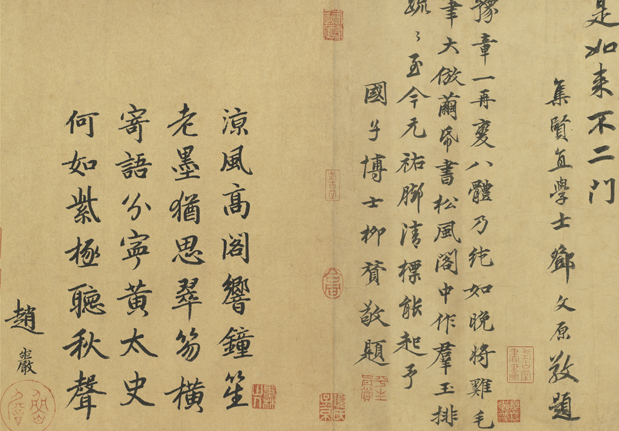 是如来不二門
集賢直學士鄧文原敬題
豫章一再變八體乃純如晚將雞毛
筆大倣繭帋書松風閣中作羣玉排
疏〻至今元祐脚清標能起予
國子博士柳贯敬題
涼風髙閣響鐘笙
老墨猶思翠笏横
寄語分寧黄太史
何如紫極聽秋聲
趙巖